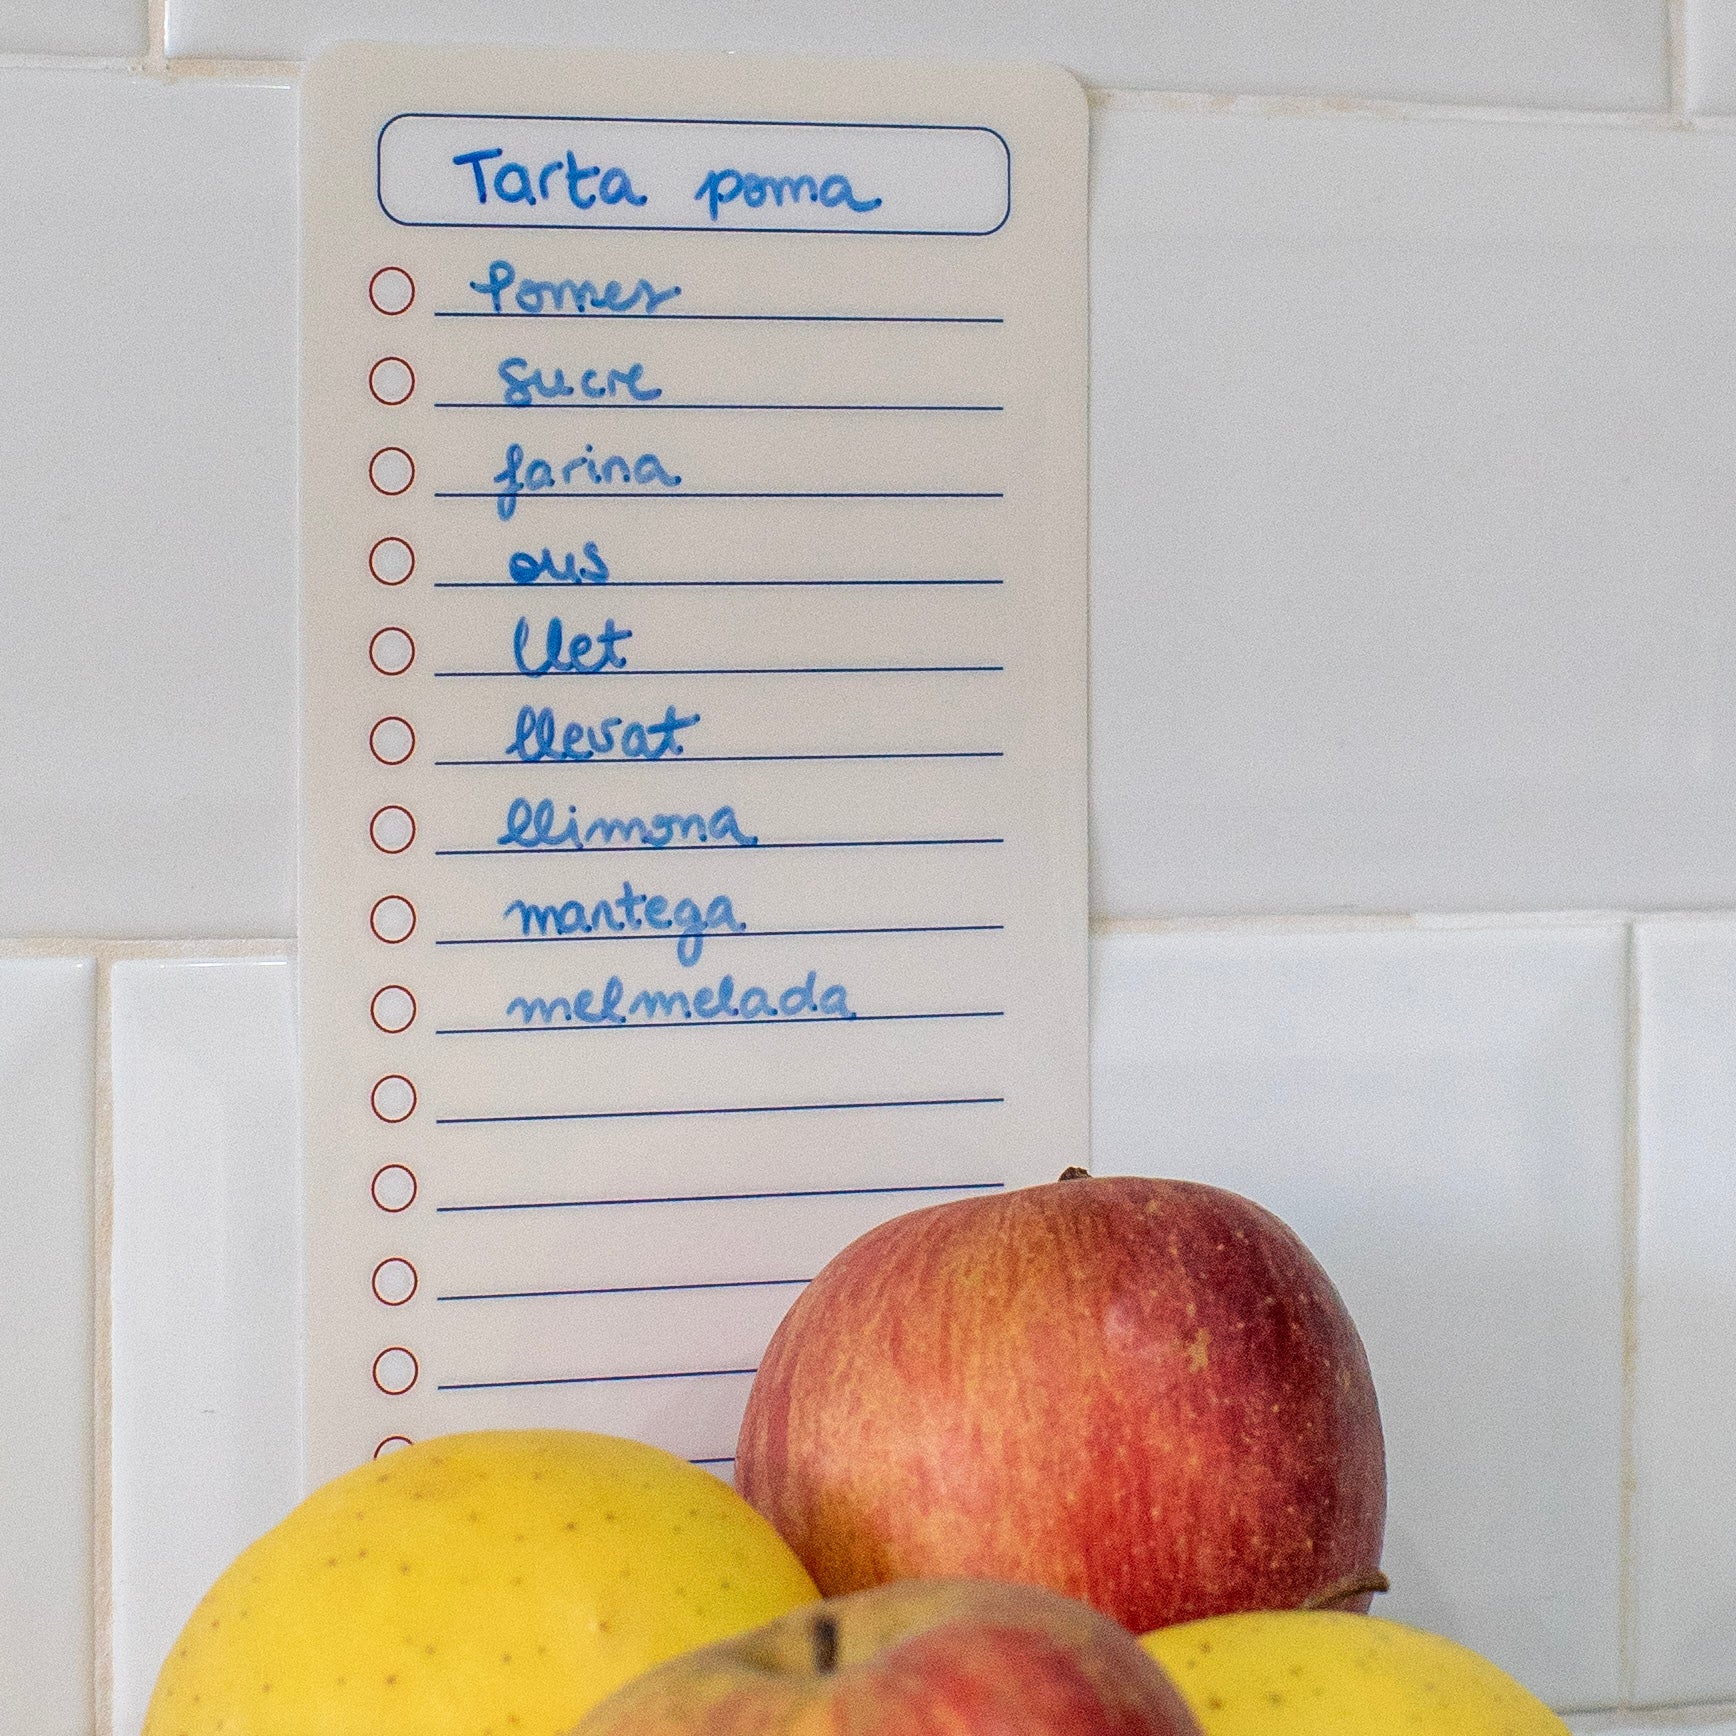 Tarta poma
Pomes
sucre
farina
ous
llet
llevat
llimona
mantega
melmelada